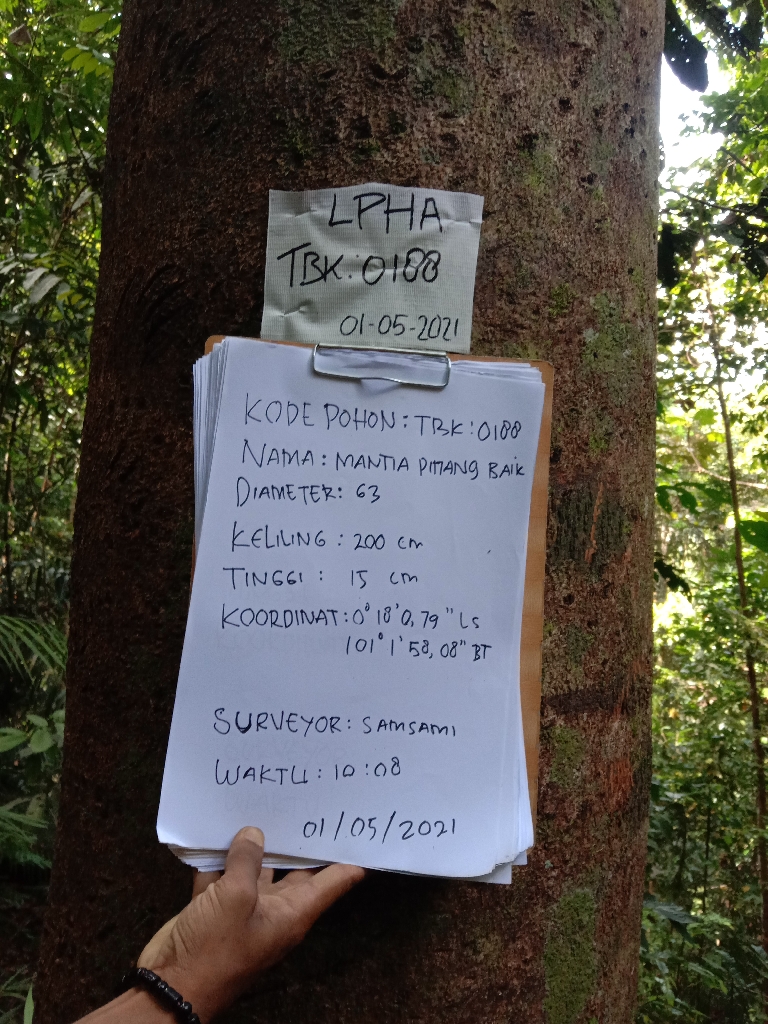 LPHA
TBK:0188
01-05-2021
KODE POHON: TBK:0188
NAMA: MANTIA PITIANG BAIK
DIAMETER: 63
KELILING: 200 cm
TINGGI: 15 cm
KOORDINAT: 0° 18' 0,79" LS
101° 1' 58,08" BT
SURVEYOR: SAMSAMI
WAKTU: 10:08
01/05/2021